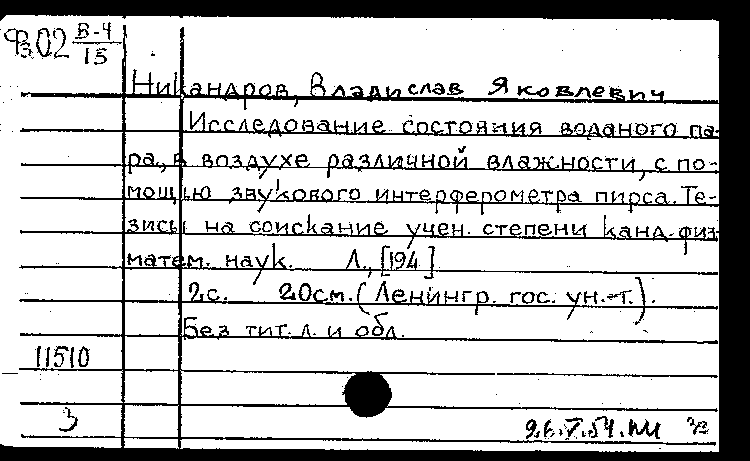 Фв02 В-4/15
Никандров, Владислав Яковлевич
Исследование состояния воданого па-
ра, в воздухе различной влажности, с по-
мощью звукового интерферометра пирса. Те-
зисы на соискание учен. степени канд. физ-
матем. наук. Л., [194 ]
2с. 20см. (Ленингр. гос. ун.-т.).
Без тит. л. и обл.
11510
3
26.V.54.